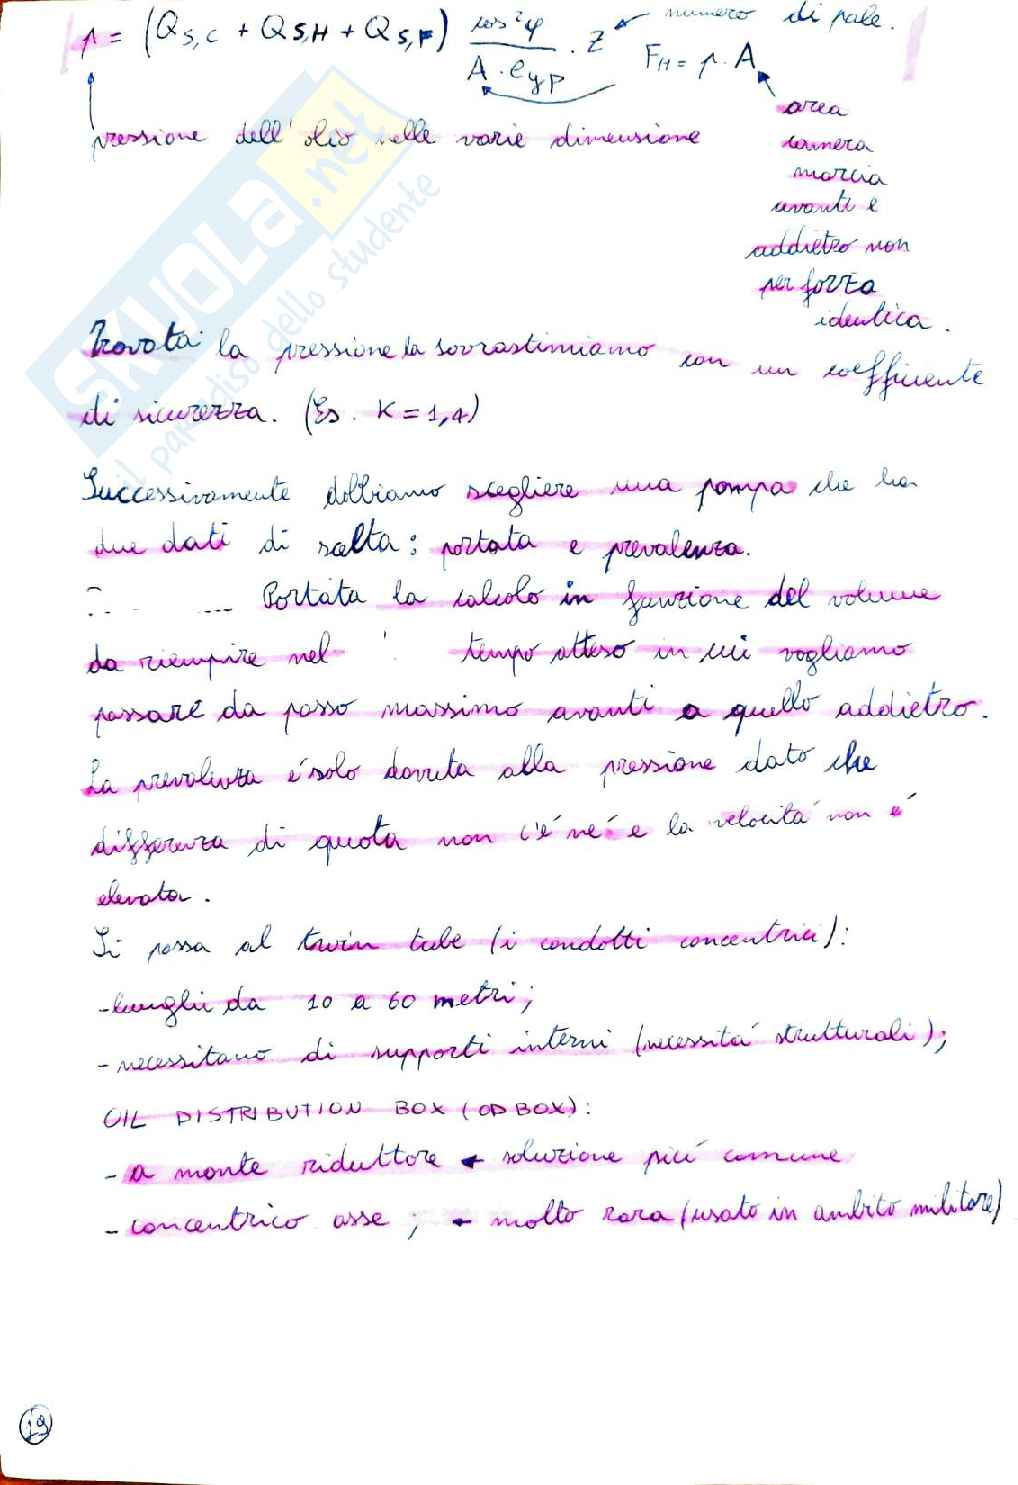 p = (Q S,C + Q S,H + Q S,F) cos²φ / (A · e yp) · Z ← numero di pale.
F H = p · A
pressione dell'olio nelle varie dimensione
area
camera
marcia
avanti e
addietro non
per forza
identica.
Trovata la pressione la sovrastimiamo con un coefficiente
di sicurezza. (Es. K = 1,4)
Successivamente dobbiamo scegliere una pompa che ha
due dati di scelta: portata e prevalenza.
Portata la calcolo in funzione del volume
da riempire nel tempo atteso in cui vogliamo
passare da passo massimo avanti a quello addietro.
La prevalenza é solo dovuta alla pressione dato che
differenza di quota non c'é né e la velocitá non é
elevata.
Si passa al twin tube (i condotti concentrici):
- lunghi da 10 a 60 metri;
- necessitano di supporti interni (necessitá strutturali);
OIL DISTRIBUTION BOX (OD BOX):
- a monte riduttore ← soluzione piú comune
- concentrico asse ; ← molto rara (usato in ambito militare)
19
SKUOLA.net
il paradiso dello studente